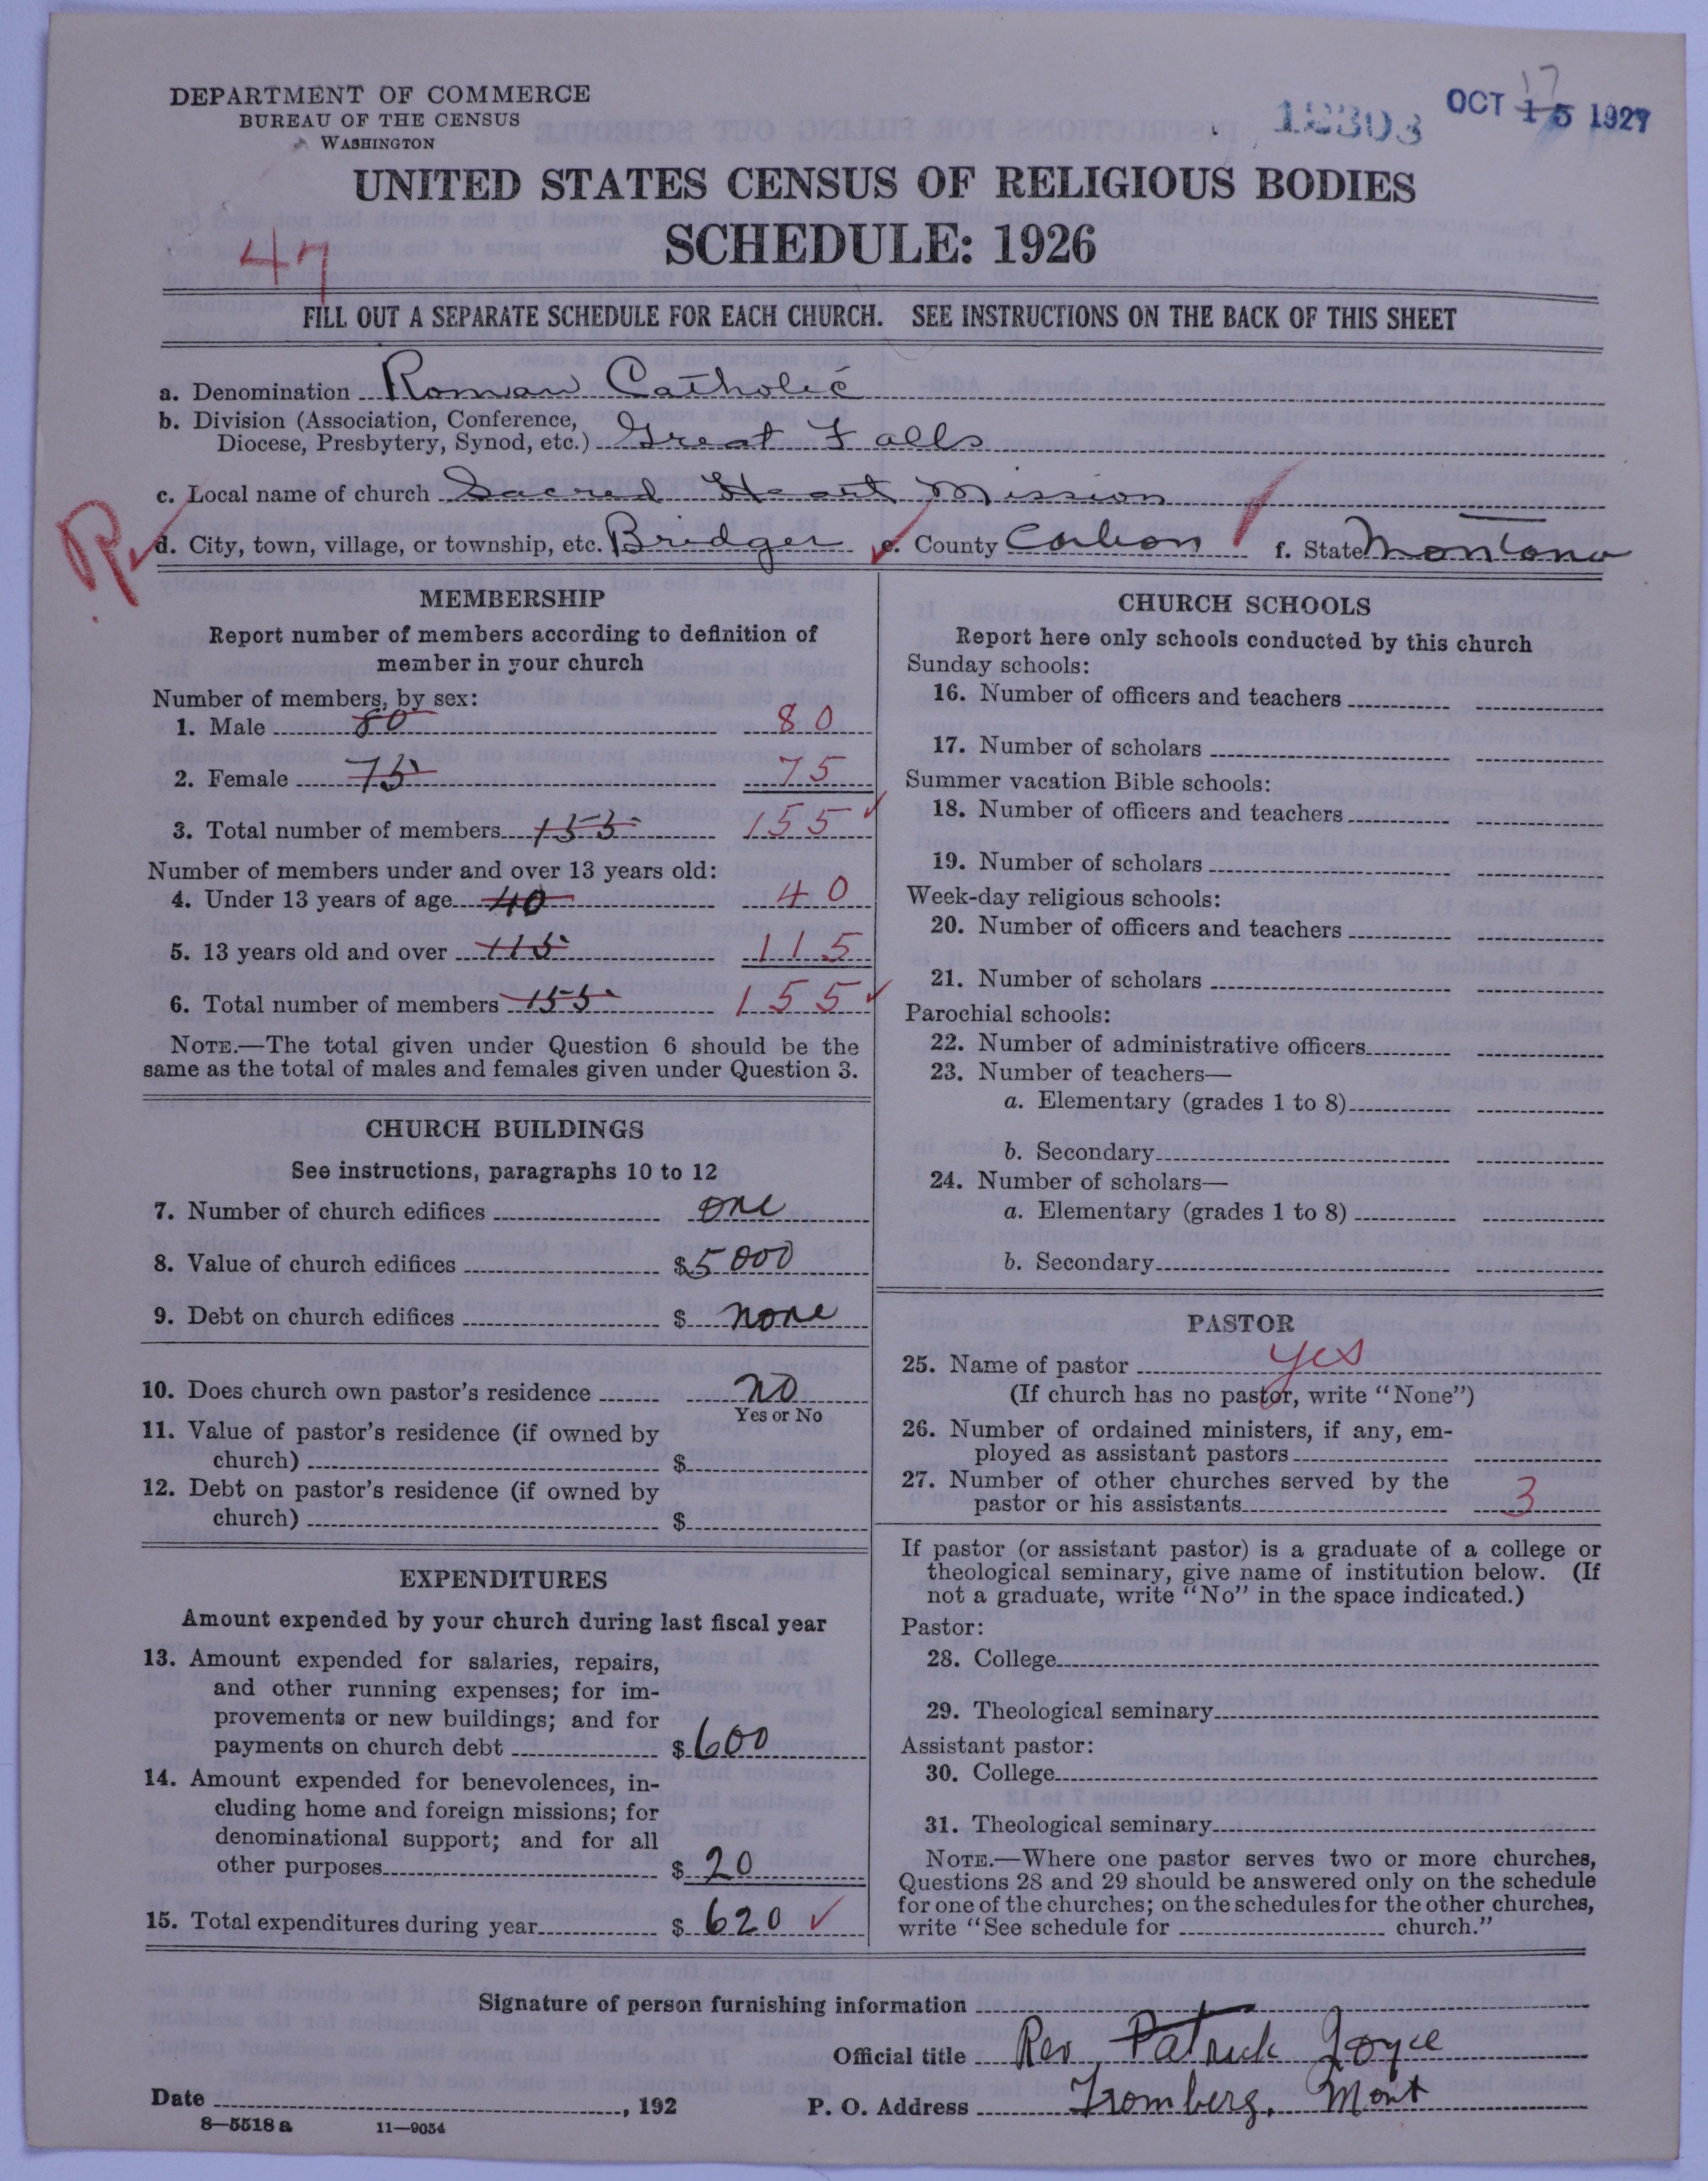 DEPARTMENT OF COMMERCE
BUREAU OF THE CENSUS
WASHINGTON
OCT 15 1927
17
UNITED STATES CENSUS OF RELIGIOUS BODIES
SCHEDULE: 1926
47
FILL OUT A SEPARATE SCHEDULE FOR EACH CHURCH. SEE INSTRUCTIONS ON THE BACK OF THIS SHEET
a. Denomination Roman Catholic
b. Division (Association, Conference,
Diocese, Presbytery, Synod, etc.) Great Falls
c. Local name of church Sacred Heart Mission
R
d. City, town, village, or township, etc. Bridger e. County Carbon f. State Montana
MEMBERSHIP
Report number of members according to definition of
member in your church
Number of members, by sex:
1. Male 80 80
2. Female 75 75
3. Total number of members 155 155
Number of members under and over 13 years old:
4. Under 13 years of age 40 40
5. 13 years old and over 115 115
6. Total number of members 155 155
NOTE.—The total given under Question 6 should be the
same as the total of males and females given under Question 3.
CHURCH BUILDINGS
See instructions, paragraphs 10 to 12
7. Number of church edifices one
8. Value of church edifices $5000
9. Debt on church edifices $ none
10. Does church own pastor's residence no
Yes or No
11. Value of pastor's residence (if owned by
church) $
12. Debt on pastor's residence (if owned by
church) $
EXPENDITURES
Amount expended by your church during last fiscal year
13. Amount expended for salaries, repairs,
and other running expenses; for im-
provements or new buildings; and for
payments on church debt $600
14. Amount expended for benevolences, in-
cluding home and foreign missions; for
denominational support; and for all
other purposes $20
15. Total expenditures during year $620
CHURCH SCHOOLS
Report here only schools conducted by this church
Sunday schools:
16. Number of officers and teachers
17. Number of scholars
Summer vacation Bible schools:
18. Number of officers and teachers
19. Number of scholars
Week-day religious schools:
20. Number of officers and teachers
21. Number of scholars
Parochial schools:
22. Number of administrative officers
23. Number of teachers—
a. Elementary (grades 1 to 8)
b. Secondary
24. Number of scholars—
a. Elementary (grades 1 to 8)
b. Secondary
PASTOR
25. Name of pastor yes
(If church has no pastor, write "None")
26. Number of ordained ministers, if any, em-
ployed as assistant pastors
27. Number of other churches served by the
pastor or his assistants 3
If pastor (or assistant pastor) is a graduate of a college or
theological seminary, give name of institution below. (If
not a graduate, write "No" in the space indicated.)
Pastor:
28. College
29. Theological seminary
Assistant pastor:
30. College
31. Theological seminary
NOTE.—Where one pastor serves two or more churches,
Questions 28 and 29 should be answered only on the schedule
for one of the churches; on the schedules for the other churches,
write "See schedule for church."
Signature of person furnishing information
Official title Rev Patrick Joyce
Date , 192 P. O. Address Fromberg, Mont
8—5518 a 11—9054